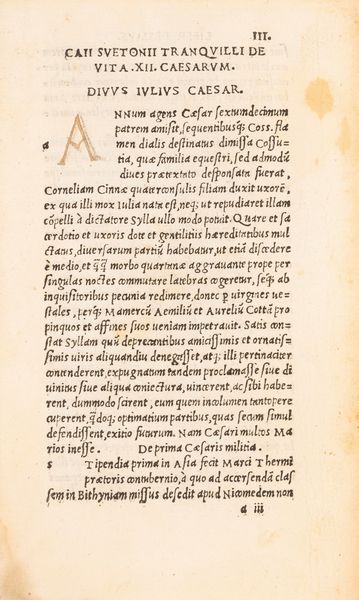 III.
CAII SVETONII TRANQVILLI DE
VITA .XII. CAESARVM.
DIVVS IVLIVS CAESAR.
A NNum agens Cæsar sextumdecimum
patrem amisit, sequentibusq; Coss. fla
a men dialis destinatus dimissa Cossu-
tia, quæ familia equestri, sed admodũ
diues prætextato desponsata fuerat,
Corneliam Cinnæ quater consulis filiam duxit uxorẽ,
ex qua illi mox Iulia nata est, neq; ut repudiaret illam
cõpelli à dictatore Sylla ullo modo potuit. Quare et sa
cerdotio et uxoris dote et gentilitiis hæreditatibus mul
ctatus, diuersarum partiũ habebatur, ut etiã discedere
è medio, et q̃q̃ morbo quartanæ aggrauante prope per
singulas noctes commutare latebras cogeretur, seq; ab
inquisitoribus pecunia redimere, donec ꝑ uirgines ue-
stales, perq; Mamercũ Aemiliũ et Aureliũ Cottã pro
pinquos et affines suos ueniam impetrauit. Satis con-
stat Syllam quũ deprecantibus amicissimis et ornatis-
simis uiris aliquandiu denegasset, atq; illi pertinaciter
contenderent, expugnatum tandem proclamasse siue di
uinitus siue aliqua coniectura, uincerent, ac sibi habe-
rent, dummodo scirent, eum quem incolumen tantopere
cuperent, q̃doq; optimatium partibus, quas secum simul
defendissent, exitio futurum. Nam Cæsari multos Ma
rios inesse. De prima Cæsaris militia.
s Tipendia prima in Asia fecit Marci Thermi
prætoris contubernio, à quo ad accersendã clas
sem in Bithyniam missus desedit apud Nicomedem non
a iii